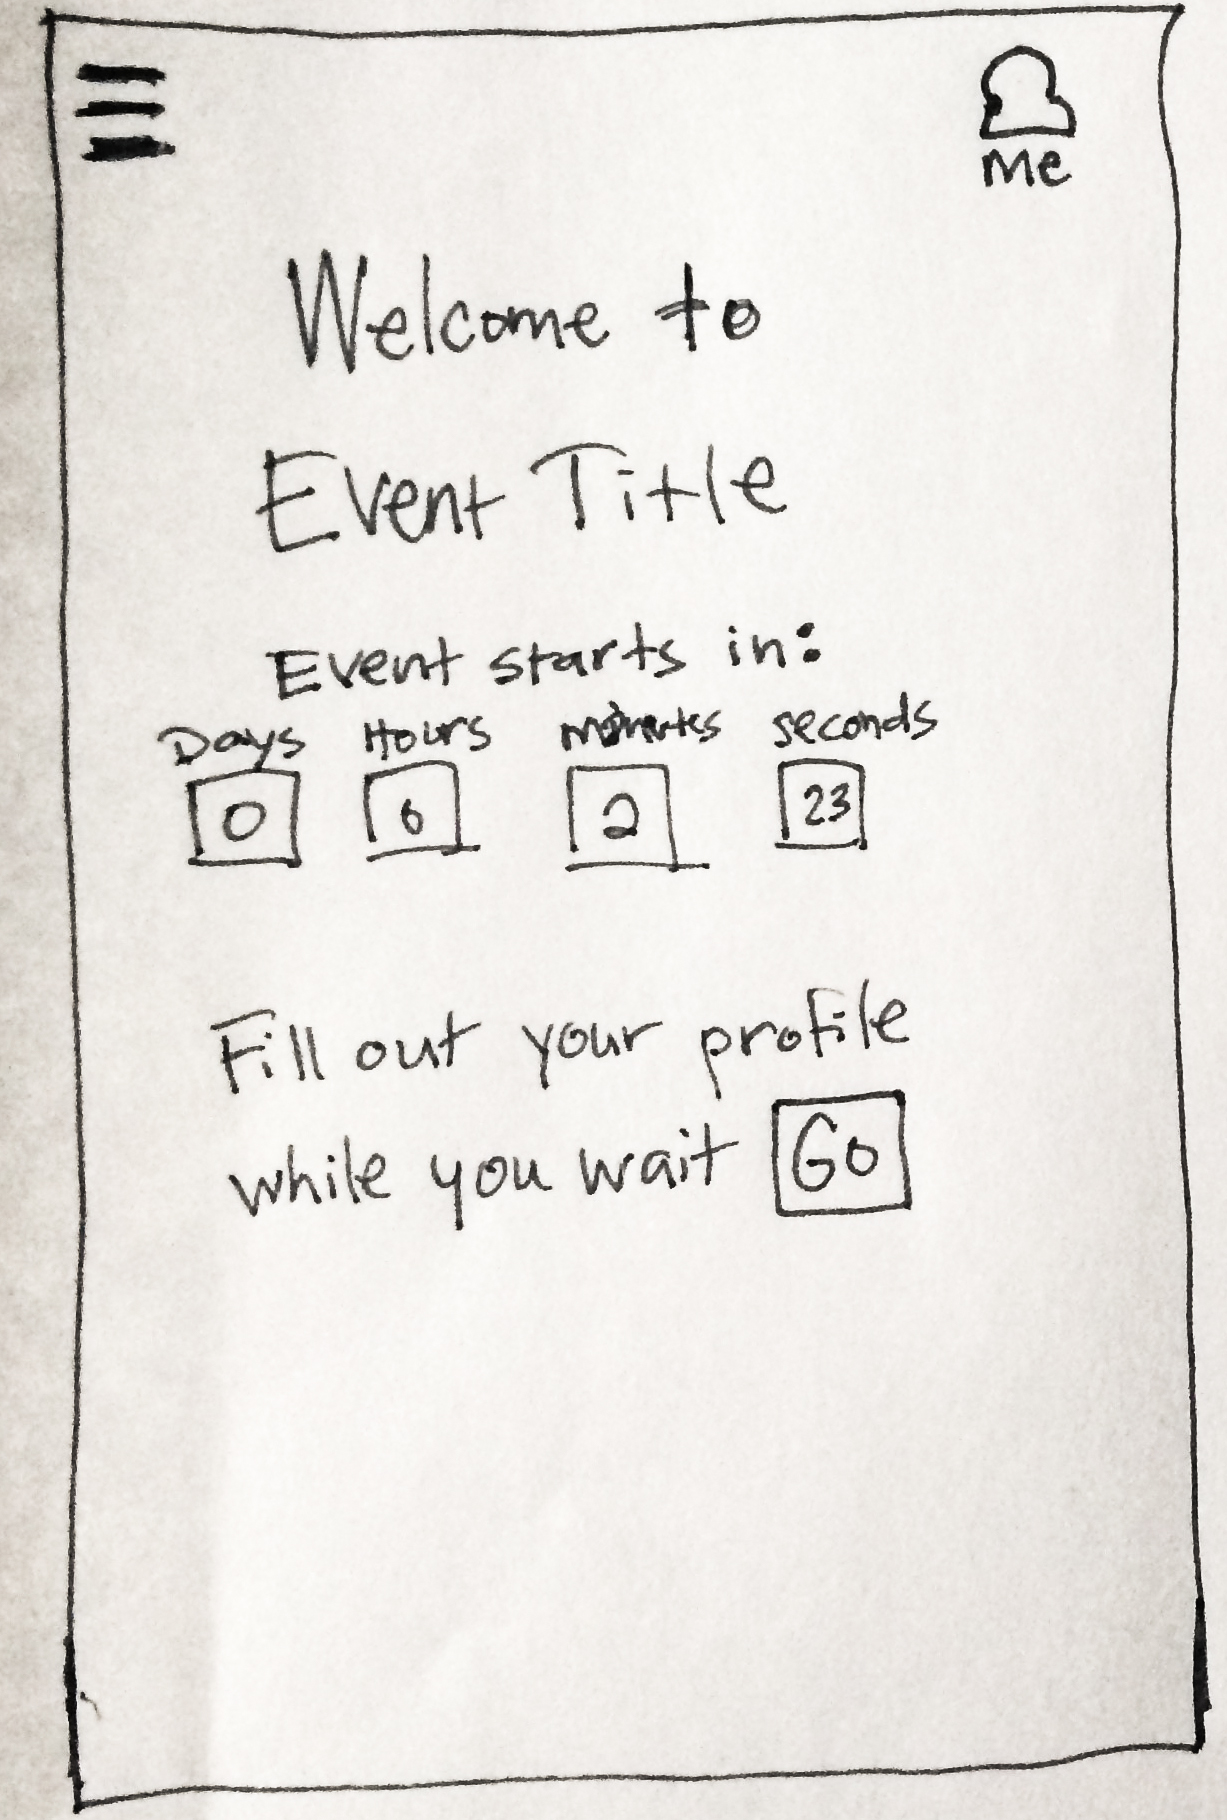 Me
Welcome to
Event Title
Event starts in:
Days Hours minutes seconds
0 6 2 23
Fill out your profile
while you wait Go